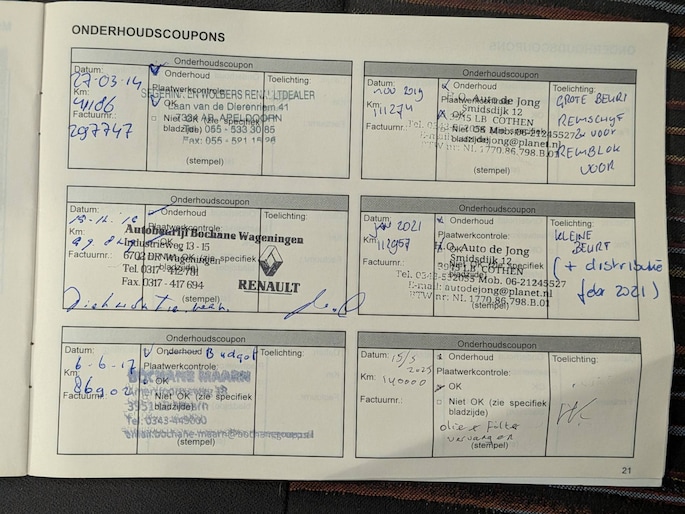 ONDERHOUDSCOUPONS
Onderhoudscoupon
Datum: Onderhoud Toelichting:
27-03-14
Plaatwerkcontrole:
Km: OK
41186
Niet OK (zie specifiek
bladzijde)
Factuurnr.:
297747
(stempel)
7334 AB APELDOORN
Tel: 055 - 533 30 85
Fax: 055 - 521 15 26
Onderhoudscoupon
Datum: Onderhoud Toelichting:
nov 2019
Plaatwerkcontrole:
Km: OK
111274
Niet OK (zie specifiek
bladzijde)
Factuurnr.:
(stempel)
H.O. Auto de Jong
Smidsdijk 12
3945 LB COTHEN
Mob. 06-21245527
E-mail: autodejong@planet.nl
BTW nr: NL 1770.86.798.B.01
GROTE BEURT
REMSCHYF
VOOR
REMBLOK
VOOR
Onderhoudscoupon
Datum: Onderhoud Toelichting:
Plaatwerkcontrole:
Km: OK
Niet OK (zie specifiek
bladzijde)
Factuurnr.:
(stempel)
Autobedrijf Bochane Wageningen
Industrieweg 13 - 15
6702 DR Wageningen
Tel. 0317
Fax. 0317 - 417 694
RENAULT
Onderhoudscoupon
Datum: Onderhoud Toelichting:
JAN 2021
Plaatwerkcontrole:
Km: OK
112957
Niet OK (zie specifiek
bladzijde)
Factuurnr.:
(stempel)
H.O. Auto de Jong
Smidsdijk 12
3945 LB COTHEN
Mob. 06-21245527
E-mail: autodejong@planet.nl
BTW nr: NL 1770.86.798.B.01
KLEINE
BEURT
(+ distributie
2021)
Onderhoudscoupon
Datum: Onderhoud Budget Toelichting:
6-6-17
Plaatwerkcontrole:
Km: OK
86902
Niet OK (zie specifiek
bladzijde)
Factuurnr.:
(stempel)
BOCHANE MAARN
Tel. 0343-449000
Onderhoudscoupon
Datum: Onderhoud Toelichting:
15/5
2025
Plaatwerkcontrole:
Km: OK
140000
Niet OK (zie specifiek
bladzijde)
Factuurnr.:
olie + filter
vervangen
(stempel)
21